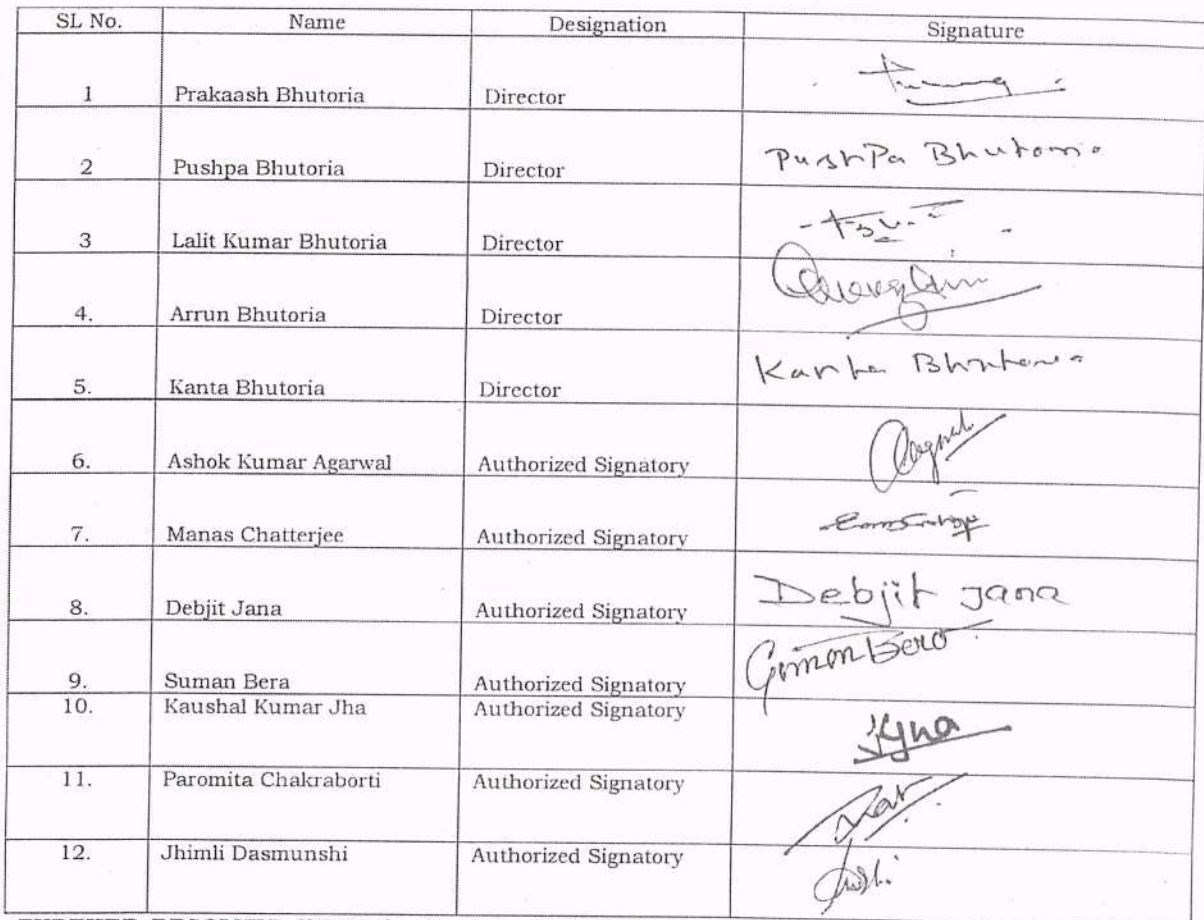 SL No. Name Designation Signature
1 Prakaash Bhutoria Director
2 Pushpa Bhutoria Director Pushpa Bhutoria
3 Lalit Kumar Bhutoria Director
4. Arrun Bhutoria Director
5. Kanta Bhutoria Director Kanta Bhutoria
6. Ashok Kumar Agarwal Authorized Signatory
7. Manas Chatterjee Authorized Signatory
8. Debjit Jana Authorized Signatory Debjit Jana
9. Suman Bera Authorized Signatory Suman Bera
10. Kaushal Kumar Jha Authorized Signatory
11. Paromita Chakraborti Authorized Signatory
12. Jhimli Dasmunshi Authorized Signatory